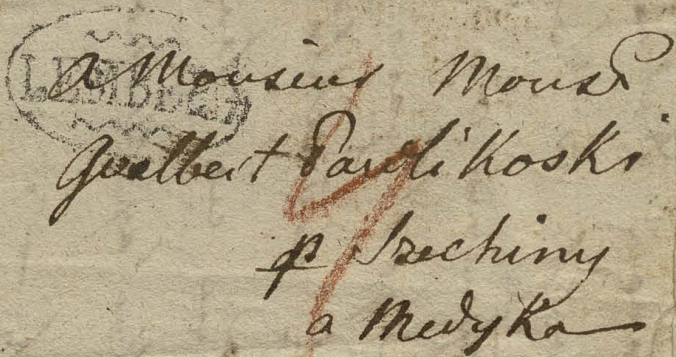 LEMBERG
a Monsieur Mons:
Gualbert Pawlikoski
p Szechiny
a Medyka